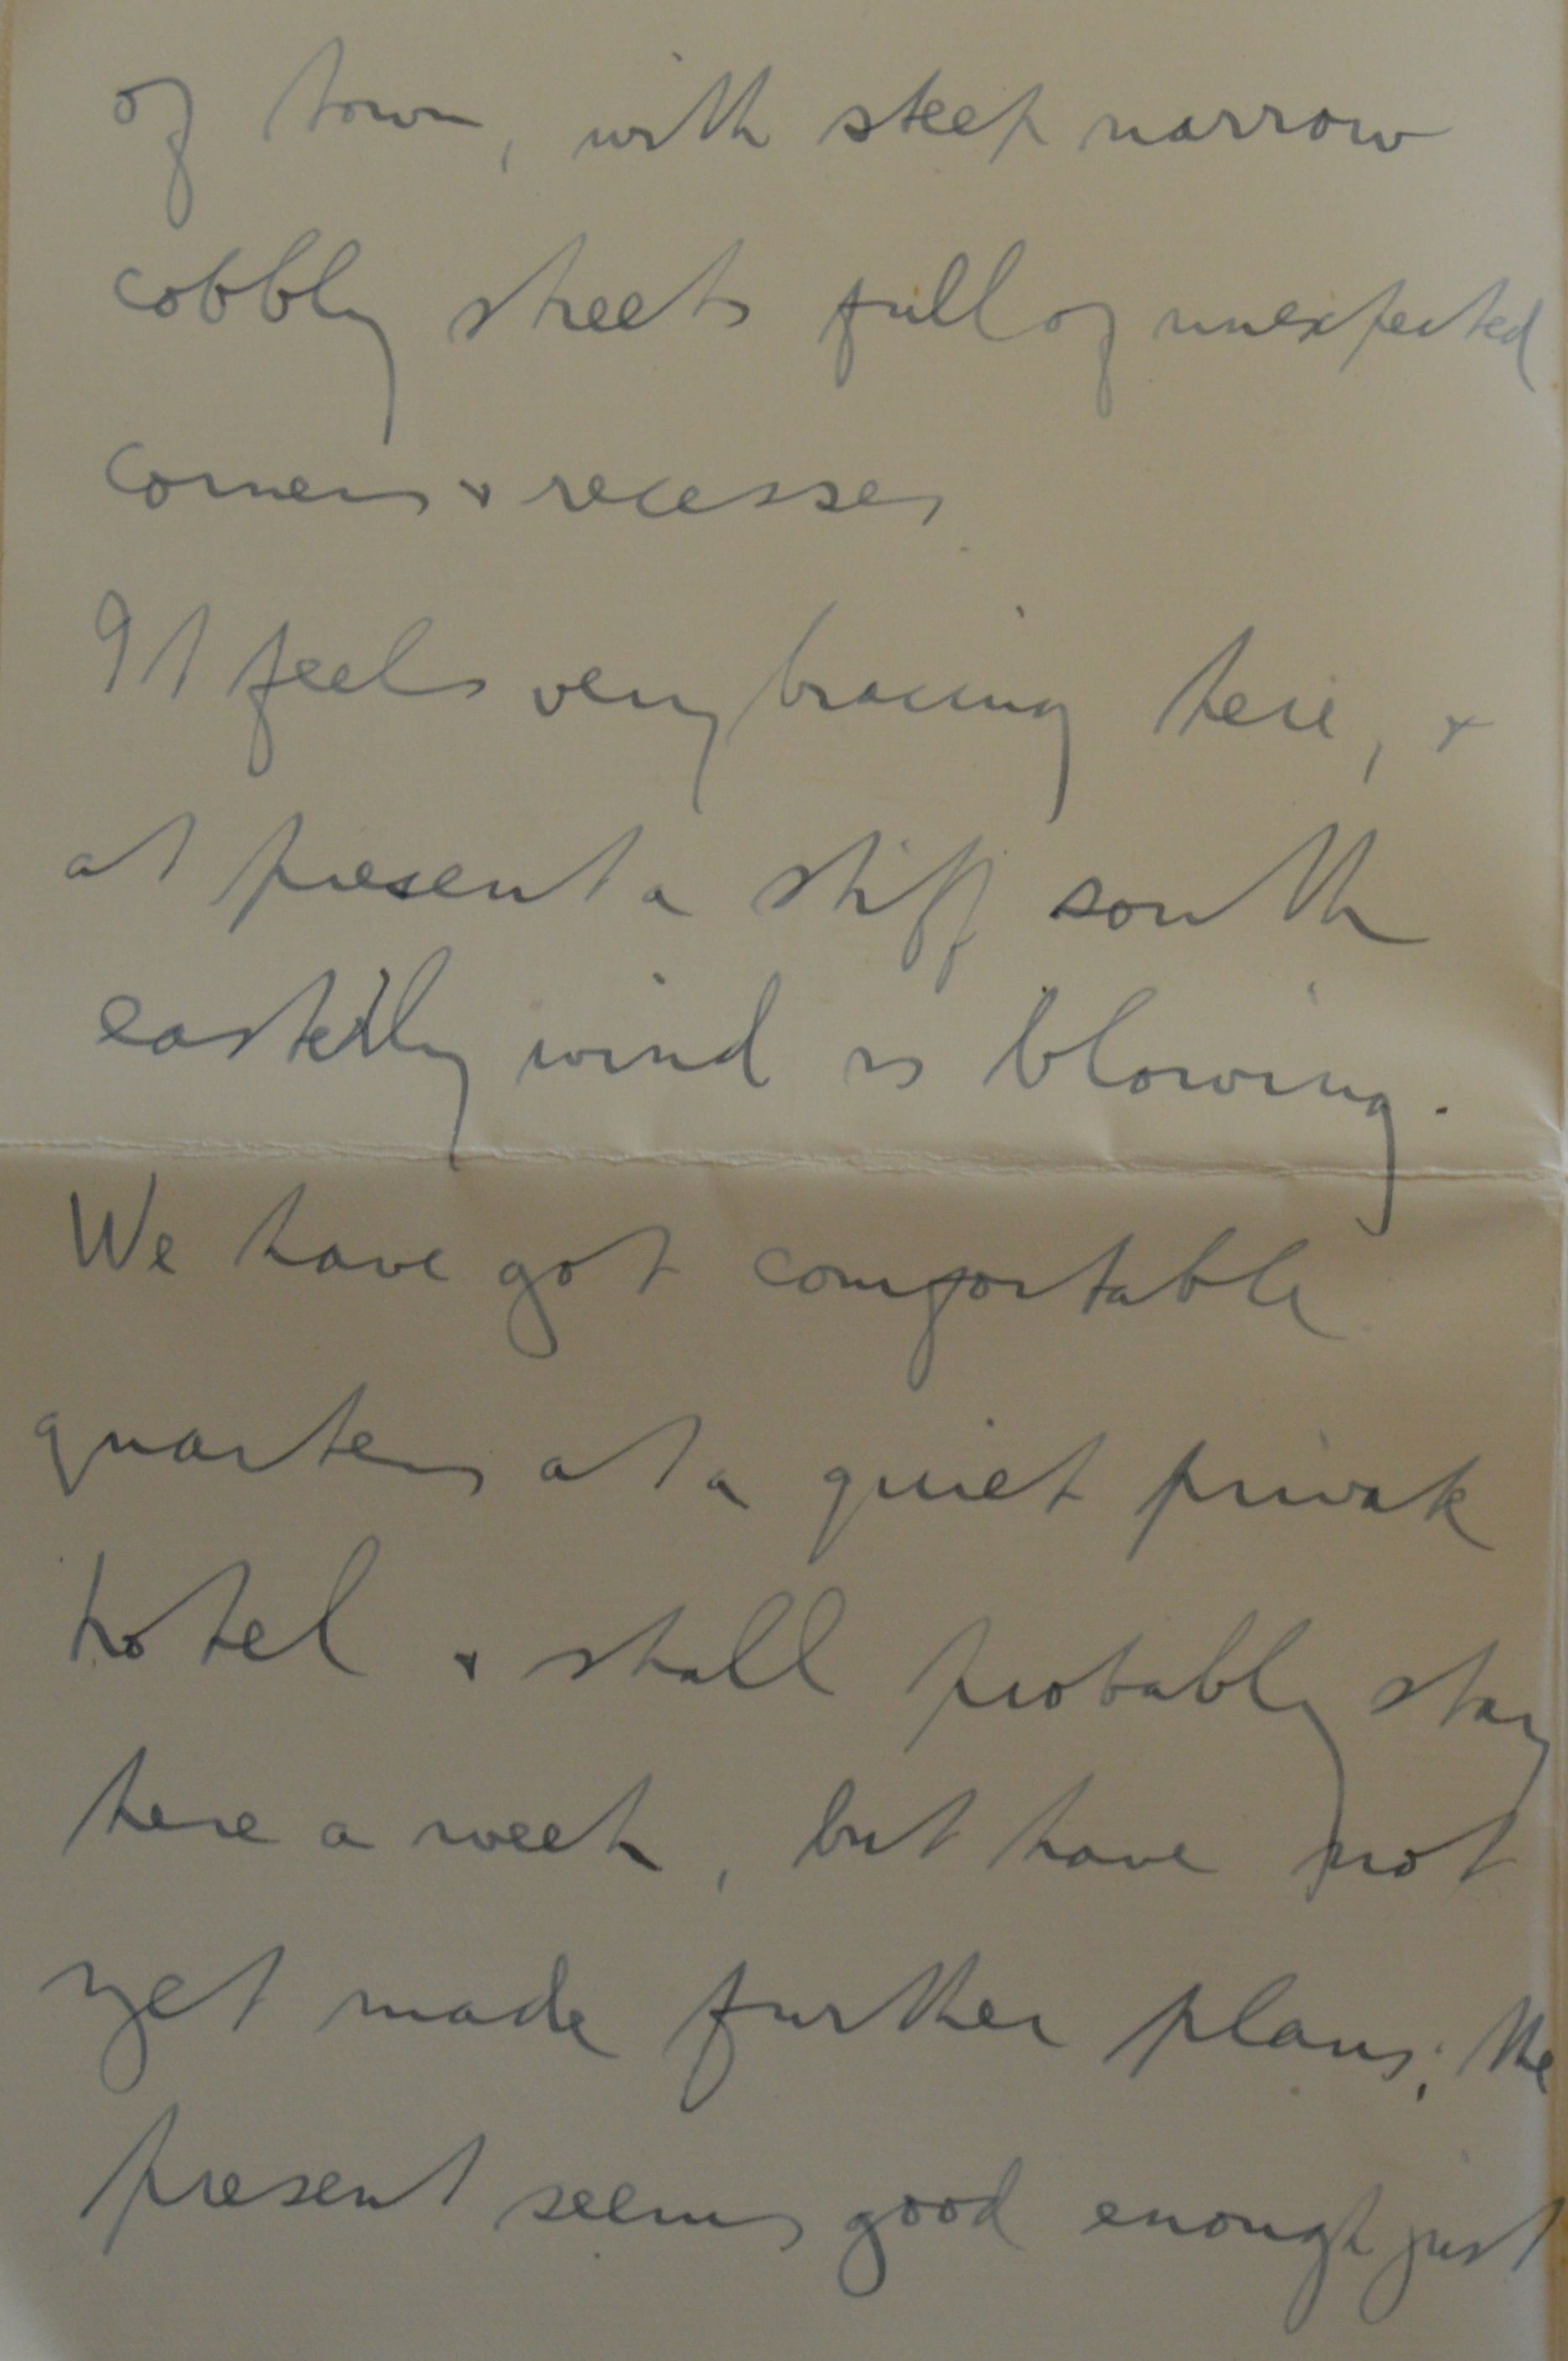 of town, with steep narrow
cobbly streets full of unexpected
corners & recesses.
It feels very bracing here, &
at present a stiff south
easterly wind is blowing.
We have got comfortable
quarters at a quiet private
hotel & shall probably stay
here a week, but have not
yet made further plans; the
present seems good enough just